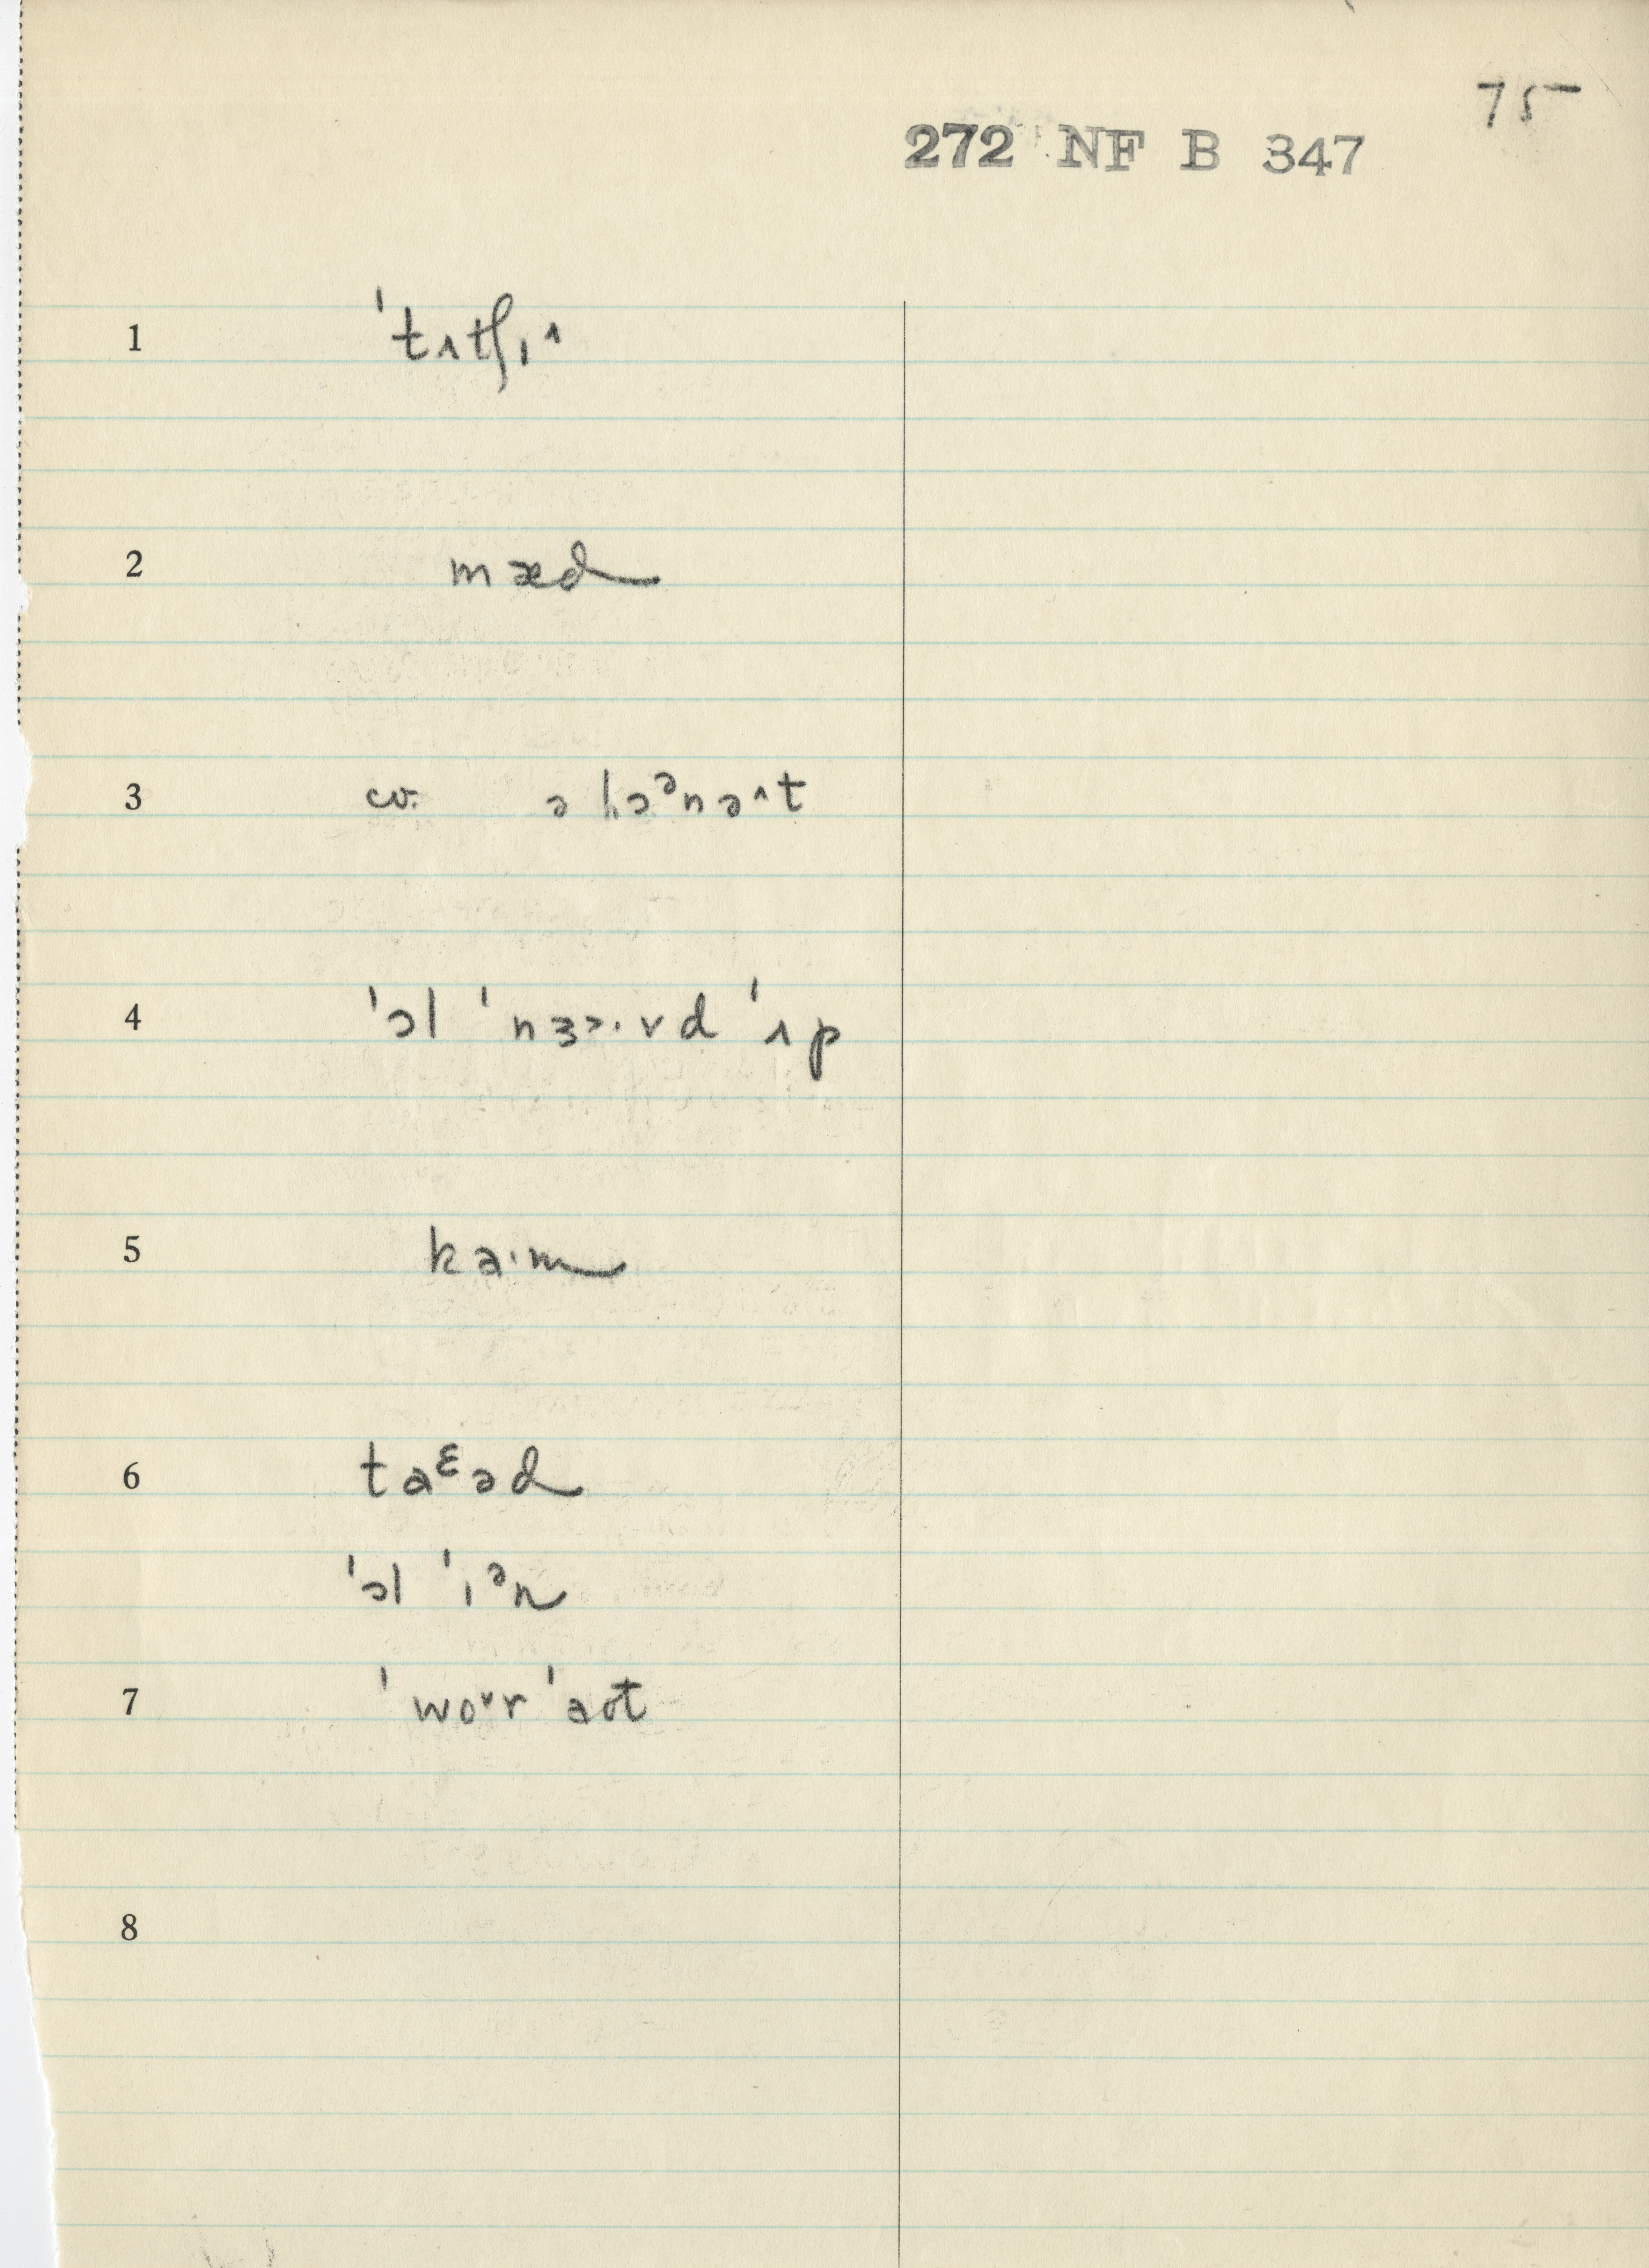 75
272 NF B 347
1 ˈtʌtʃɪ˄
2 mæd
3 cv. ə hɔᵊnə˄t
4 ˈɔl ˈnɜɚ·vd ˈʌp
5 ka·m
6 taᵋəd
ˈɔl ˈɪᵊn
7 ˈwo˅r ˈaot
8